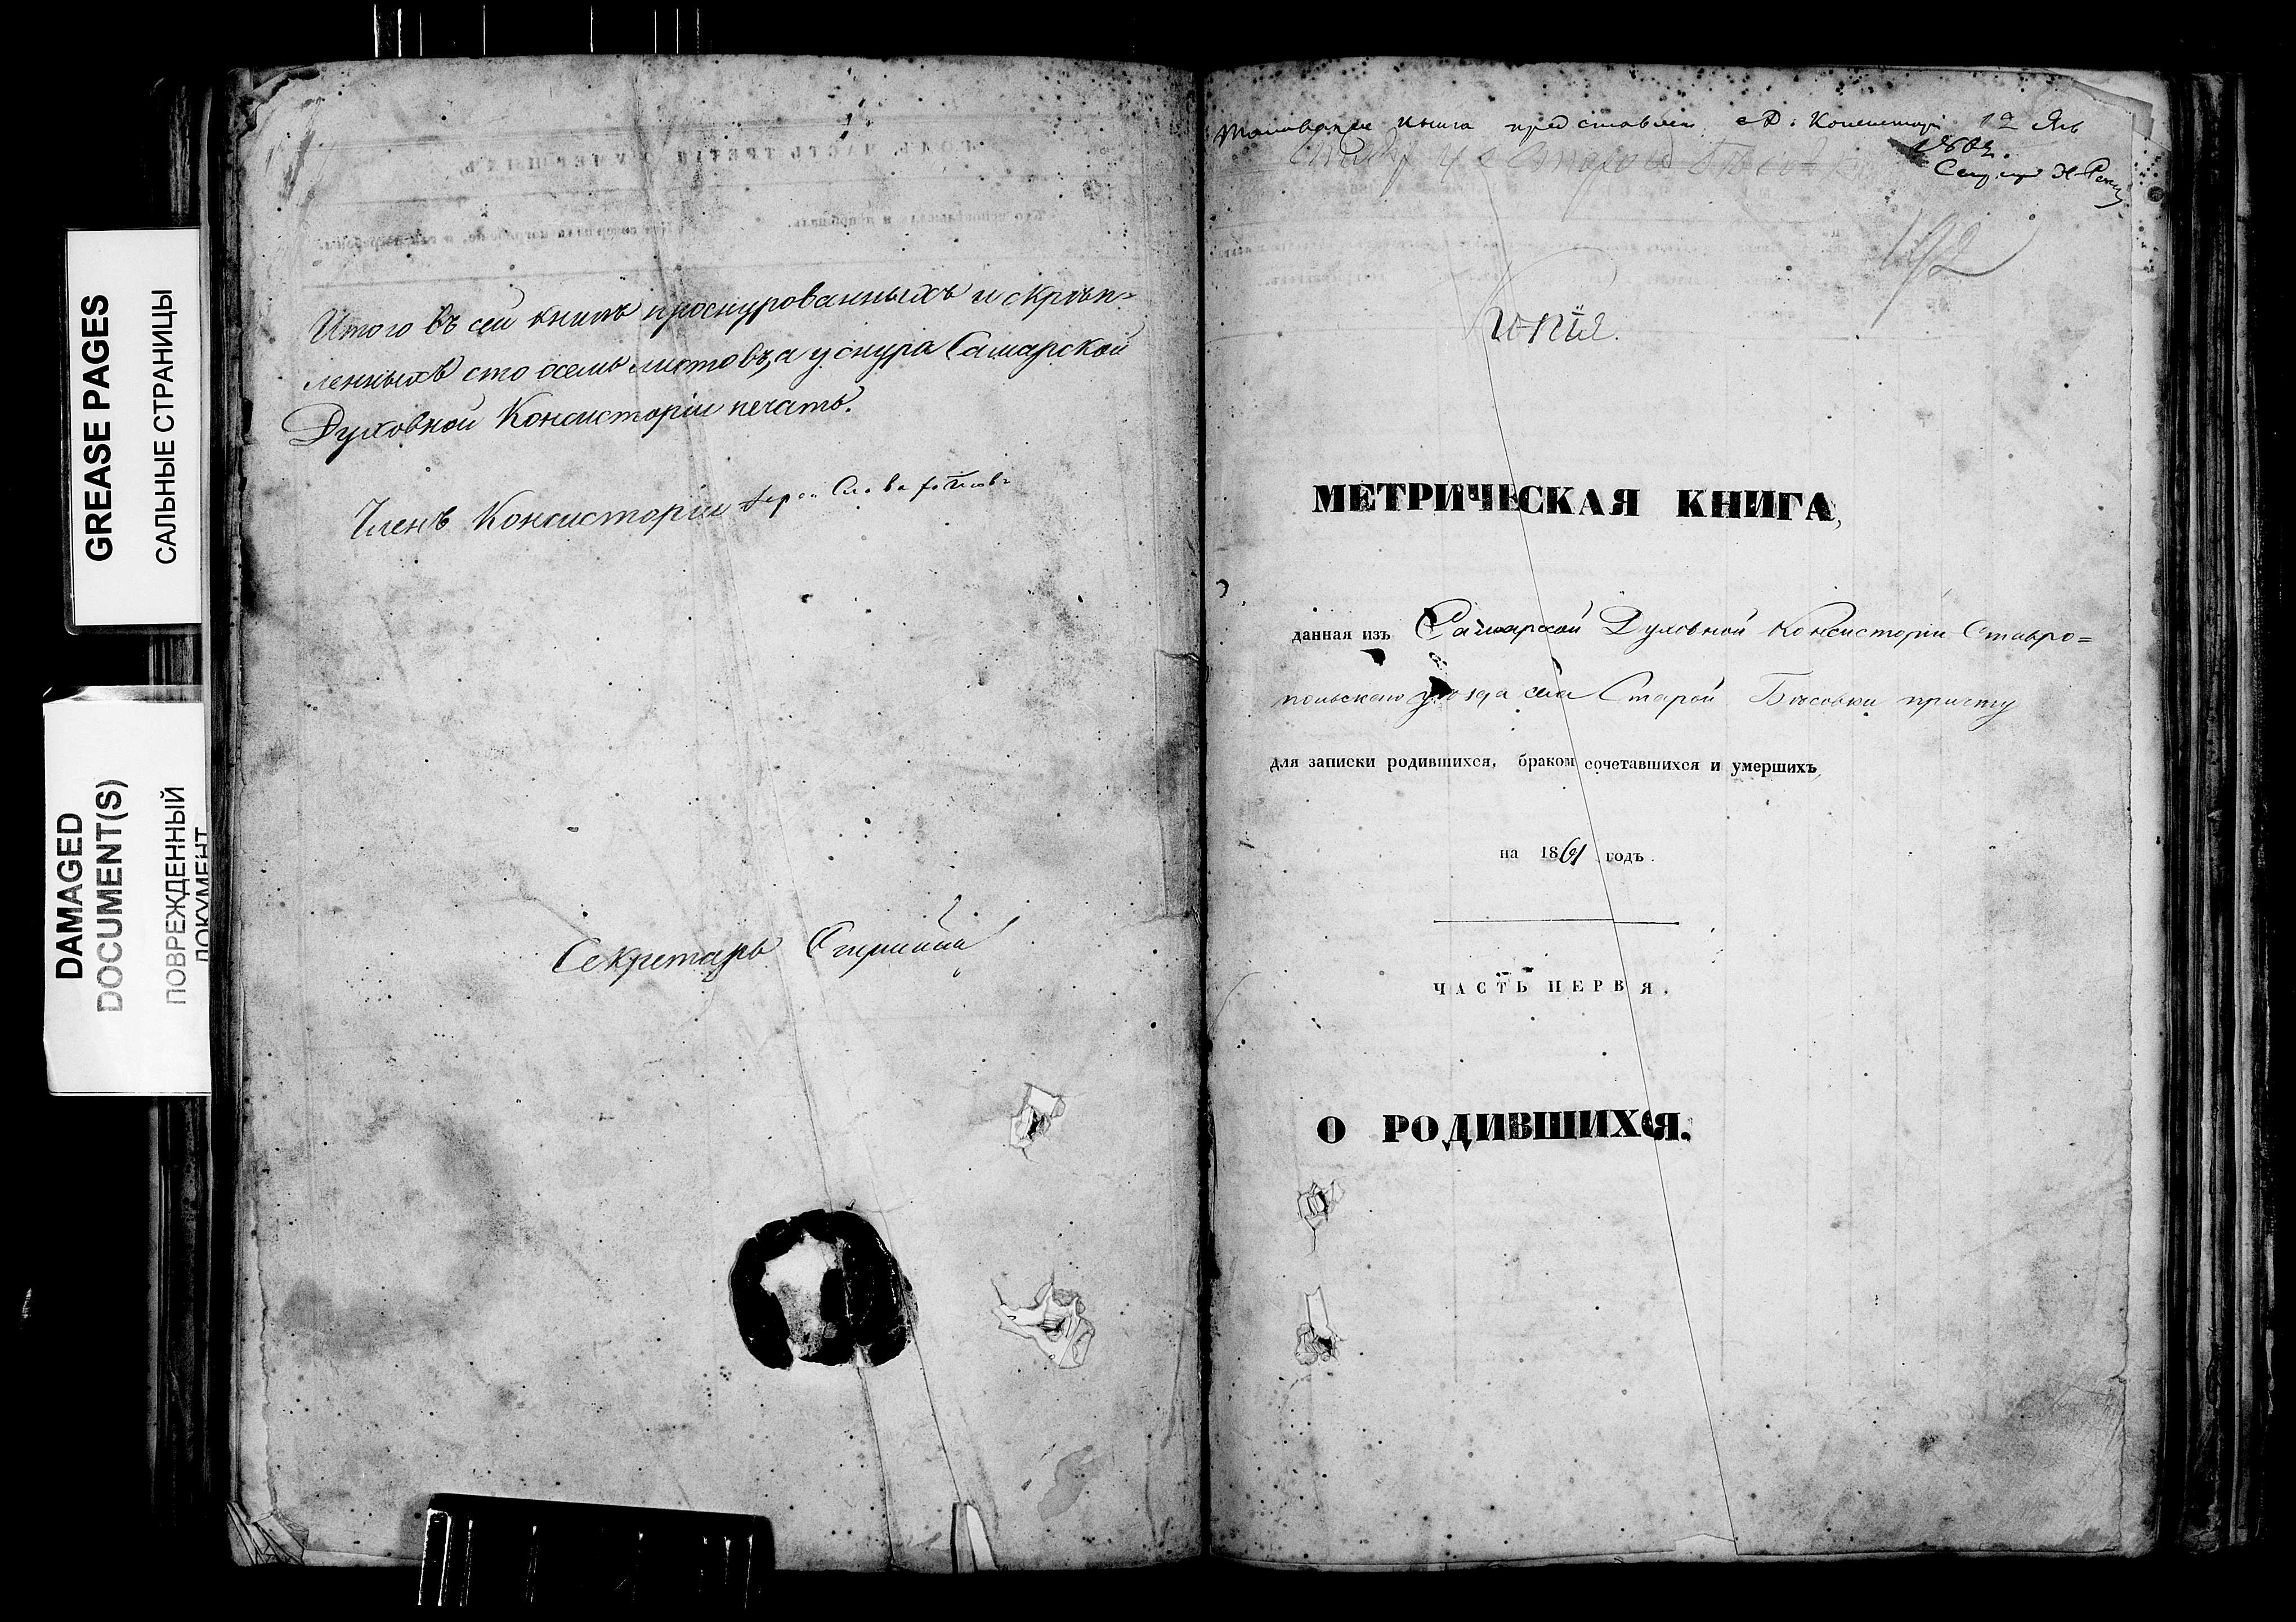 GREASE PAGES
САЛЬНЫЕ СТРАНИЦЫ
DAMAGED
DOCUMENT(S)
ПОВРЕЖДЕННЫЙ
ДОКУМЕНТ
Итого въ сей книгѣ прошнурованныхъ и скрѣп=
ленныхъ сто осемь листовъ, а у снура Самарской
Духовной Консисторіи печать.
Членъ Консисторіи
Секретарь
книга представлена Д. Консисторі 12 Янв
1862.
192
Копія.
МЕТРИЧЕСКАЯ КНИГА,
данная изъ Самарской Духовной Консисторіи Ставро=
польскаго уѣзда села Старой Бѣсовки причту
для записки родившихся, бракомъ сочетавшихся и умершихъ,
на 1861 годъ.
ЧАСТЬ ПЕРВ Я.
О РОДИВШИХСЯ.